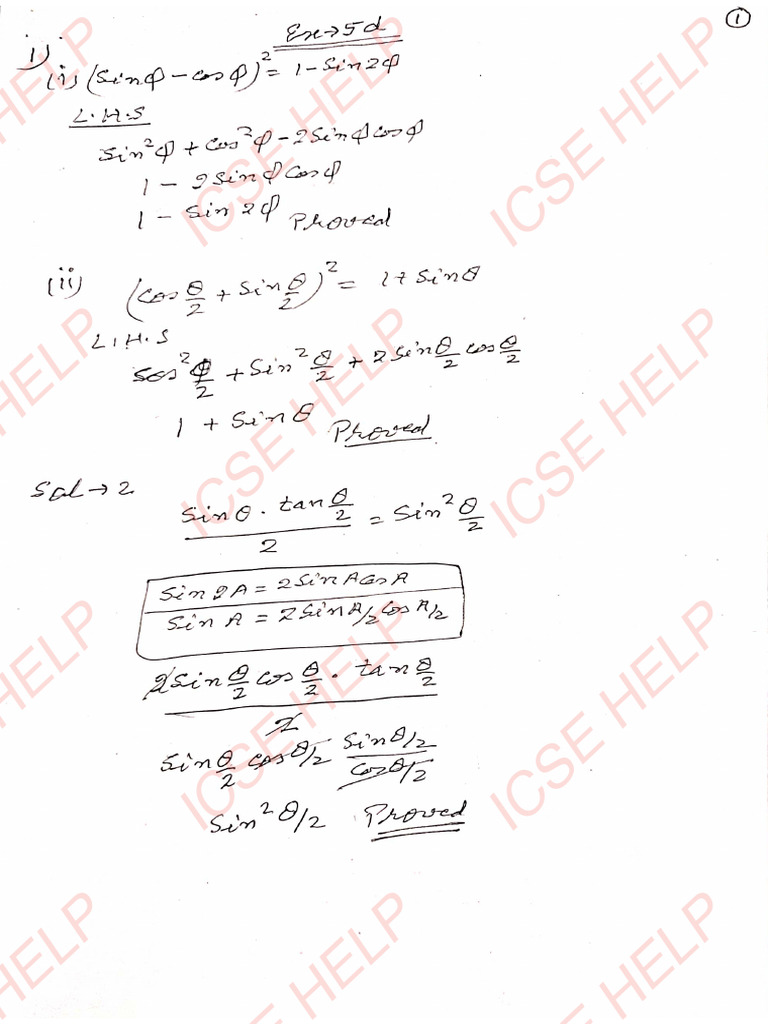 ①
Ex→5d
1)
(i) (Sinφ - cosφ)² = 1 - Sin2φ
L.H.S
Sin²φ + cos²φ - 2Sinφcosφ
1 - 2Sinφcosφ
1 - Sin2φ Proved
(ii) (cos θ/2 + Sin θ/2)² = 1 + Sinθ
L.H.S
cos² φ/2 + Sin² θ/2 + 2Sin θ/2 cos θ/2
1 + Sinθ Proved
Sol→2
Sinθ · tan θ/2 / 2 = Sin² θ/2
Sin2A = 2SinAcosA
SinA = 2SinA/2 cosA/2
2Sin θ/2 cos θ/2 · tan θ/2 / 2
Sin θ/2 cosθ/2 Sinθ/2 / cosθ/2
Sin²θ/2 Proved
ICSE HELP
ICSE HELP
ICSE HELP
ICSE HELP
ICSE HELP
ICSE HELP
ICSE HELP
ICSE HELP
ICSE HELP
HELP
ICSE HELP
ICSE HELP